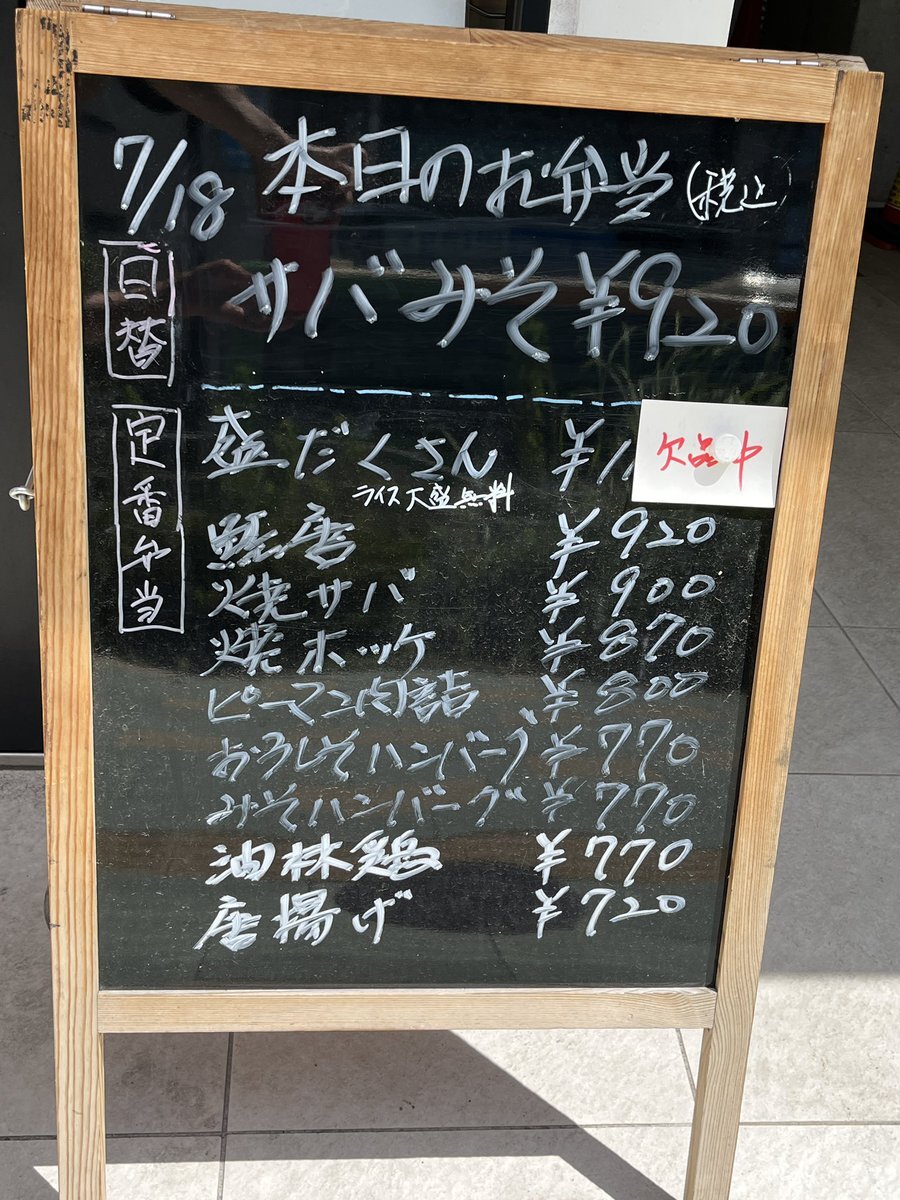 7/18 本日のお弁当(税込)
日替
サバみそ ¥920
定番弁当
盛だくさん ¥11
欠品中
ライス大盛無料
¥920
焼サバ ¥900
焼ホッケ ¥870
ピーマン肉詰 ¥800
おろしそハンバーグ ¥770
みそハンバーグ ¥770
油林鶏 ¥770
唐揚げ ¥720